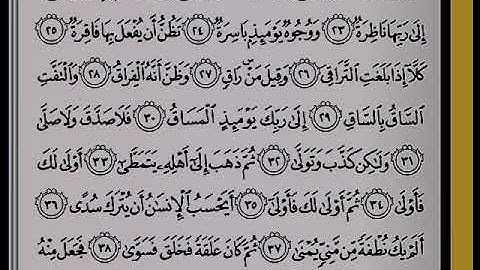 إِلَىٰ رَبِّهَا نَاظِرَةٌ ٢٣ وَوُجُوهٌ يَوْمَئِذٍ بَاسِرَةٌ ٢٤ تَظُنُّ أَن يُفْعَلَ بِهَا فَاقِرَةٌ ٢٥
كَلَّا إِذَا بَلَغَتِ التَّرَاقِيَ ٢٦ وَقِيلَ مَنْ رَاقٍ ٢٧ وَظَنَّ أَنَّهُ الْفِرَاقُ ٢٨ وَالْتَفَّتِ
السَّاقُ بِالسَّاقِ ٢٩ إِلَىٰ رَبِّكَ يَوْمَئِذٍ الْمَسَاقُ ٣٠ فَلَا صَدَّقَ وَلَا صَلَّىٰ
٣١ وَلَٰكِن كَذَّبَ وَتَوَلَّىٰ ٣٢ ثُمَّ ذَهَبَ إِلَىٰ أَهْلِهِ يَتَمَطَّىٰ ٣٣ أَوْلَىٰ لَكَ
فَأَوْلَىٰ ٣٤ ثُمَّ أَوْلَىٰ لَكَ فَأَوْلَىٰ ٣٥ أَيَحْسَبُ الْإِنسَانُ أَن يُتْرَكَ سُدًى ٣٦
أَلَمْ يَكُ نُطْفَةً مِّن مَّنِيٍّ يُمْنَىٰ ٣٧ ثُمَّ كَانَ عَلَقَةً فَخَلَقَ فَسَوَّىٰ ٣٨ فَجَعَلَ مِنْهُ